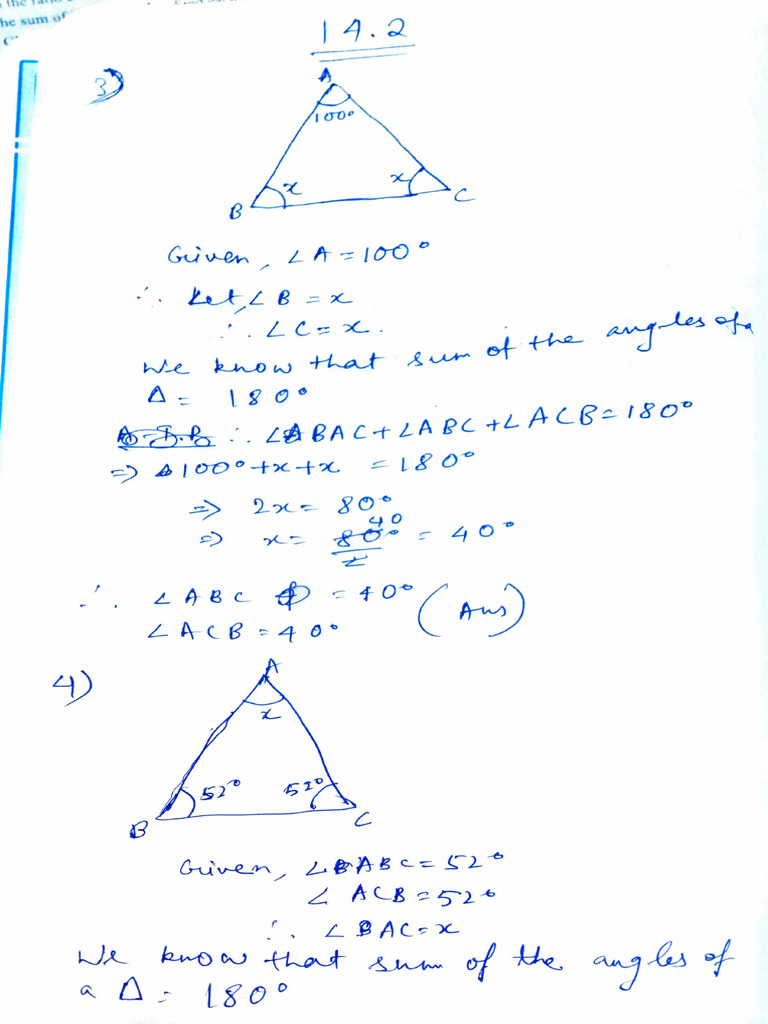 he sum of
14.2
3)
A
100°
x
x
B
C
Given, ∠A = 100°
∴ Let, ∠B = x
∴ ∠C = x.
We know that sum of the angles of a
Δ = 180°
∴ ∠BAC + ∠ABC + ∠ACB = 180°
⇒ 100° + x + x = 180°
⇒ 2x = 80°
40
⇒ x = 80°/2 = 40°
∴ ∠ABC = 40°
∠ACB = 40° (Ans)
4)
A
x
52°
52°
B
C
Given, ∠ABC = 52°
∠ACB = 52°
∴ ∠BAC = x
We know that sum of the angles of
a Δ = 180°